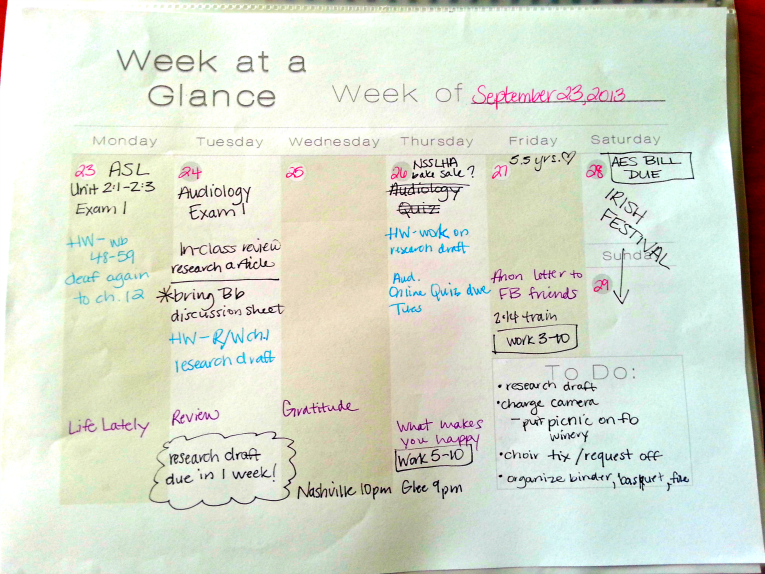 Week at a
Glance
Week of September 23, 2013
Monday
Tuesday
Wednesday
Thursday
Friday
Saturday
23 ASL
Unit 2:1-2:3
Exam 1
HW-wb
48-59
deaf again
to ch. 12
Life Lately
24
Audiology
Exam 1
In-class review
research article
*bring Bb
discussion sheet
HW-R/W ch.1
research draft
Review
research draft
due in 1 week!
25
Gratitude
Nashville 10pm
26 NSSLHA
bake sale?
Audiology
Quiz
HW-work on
research draft
Aud.
Online Quiz due
Tues
What makes
you happy
Work 5-10
Glee 9pm
27 5.5 yrs. ♡
Anon letter to
FB friends
2:14 train
work 3-10
28 AES BILL
DUE
IRISH
FESTIVAL
Sunday
29
To Do:
• research draft
• charge camera
- put picnic on fb
winery
• choir tix / request off
• organize binder, basket, file